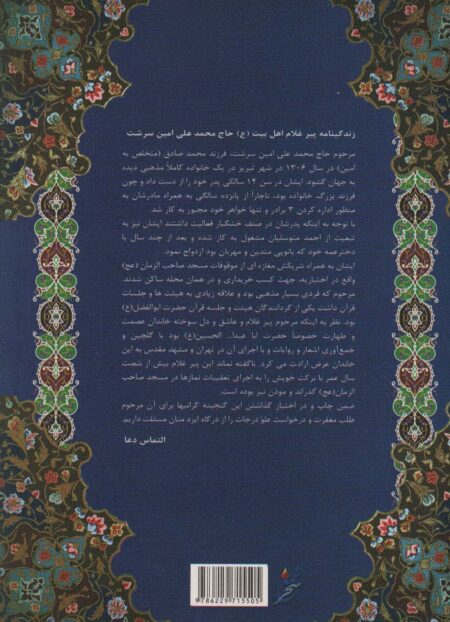 زندگینامه پیر غلام اهل بیت (ع) حاج محمد علی امین سرشت
مرحوم حاج محمد علی امین سرشت، فرزند محمد صادق (متخلص به
امین) در سال ۱۳۰۶ در شهر تبریز در یک خانواده کاملاً مذهبی دیده
به جهان گشود. ایشان در سن ۱۴ سالگی پدر خود را از دست داد و چون
فرزند بزرگ خانواده بود، ناچاراً از پانزده سالگی به همراه مادرشان به
منظور اداره کردن ۳ برادر و تنها خواهر خود مجبور به کار شد.
با توجه به اینکه پدرشان در صنف خشکبار فعالیت داشتند ایشان نیز به
تبعیت از احمد متوسلیان مشغول به کار شده و بعد از چند سال با
دخترعمه خود که بانویی متدین و مهربان بود ازدواج نمود.
ایشان به همراه شریکش مغازه ای از موقوفات مسجد صاحب الزمان (عج)
واقع در اختیاریه، جهت کسب خریداری و در همان محله ساکن شدند.
مرحوم که فردی بسیار مذهبی بود و علاقه زیادی به هیئت ها و جلسات
قرآن داشت یکی از گردانندگان هیئت و جلسه قرآن حضرت ابوالفضل(ع)
بود. نظر به اینکه مرحوم پیر غلام و عاشق و دل سوخته خاندان عصمت
و طهارت خصوصاً حضرت ابا عبدا... الحسین(ع) بود با گلچین و
جمع‌آوری اشعار و روایات و با اجرای آن در تهران و مشهد مقدس به این
خاندان عرض ارادت می کرد. ناگفته نماند این پیر غلام بیش از شصت
سال عمر با برکت خویش را به اجرای تعقیبات نمازها در مسجد صاحب
الزمان(عج) گذراند و موذن نیز بوده است.
ضمن چاپ و در اختیار گذاشتن این گنجینه گرانبها برای آن مرحوم
طلب مغفرت و درخواست علو درجات را از درگاه ایزد منان مسئلت داریم.
التماس دعا
9786229715505